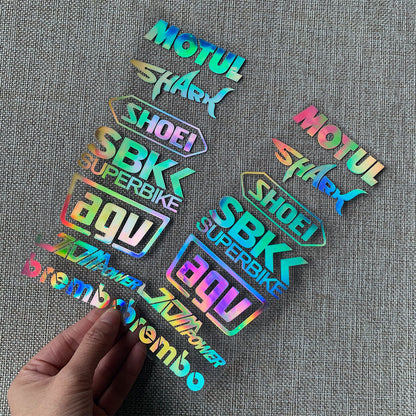 MOTUL
SHARK
SHOEI
SBK
SUPERBIKE
agv
JDM POWER
brembo
MOTUL
SHARK
SHOEI
SBK
SUPERBIKE
agv
JDM POWER
brembo